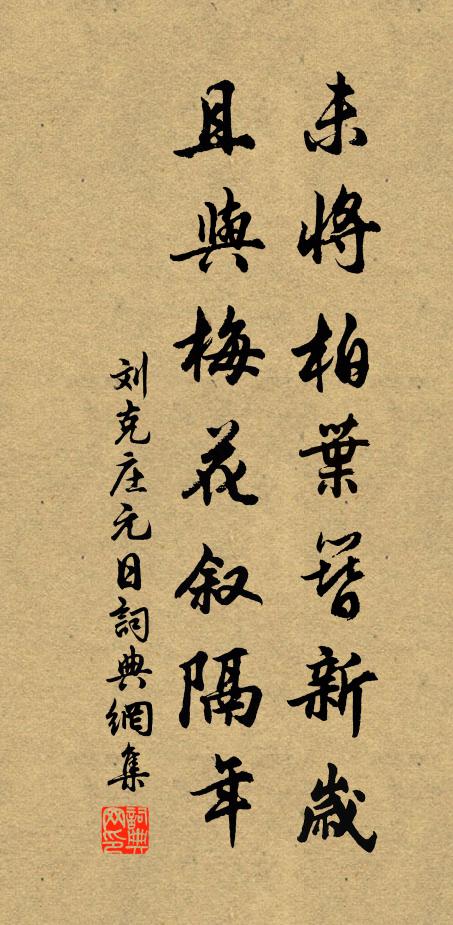 未將柏葉簪新歲
且與梅花叙隔年
刘克庄元日詞典網集
詞典网印